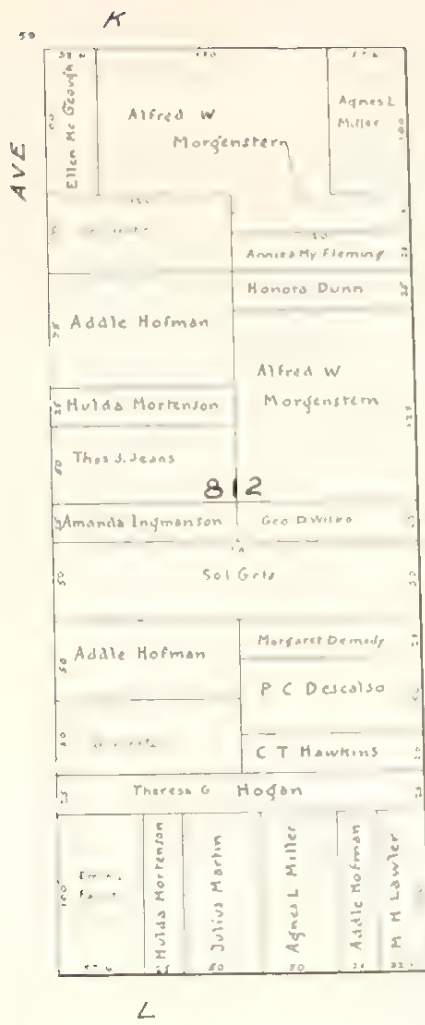 K
50
AVE
Ellen McGeough
Alfred W
Morgenstern
Agnes L
Miller
100
Annie My Fleming
Honora Dunn
25
75
Addie Hofman
Alfred W
Morgenstern
125
25
Hulda Mortenson
50
Thos J. Jeans
812
Amanda Ingmanson
Geo D
50
Sol Getz
50
50
Addie Hofman
Margaret
25
P C Descalso
50
50
C T Hawkins
25
25
Theresa G Hogan
25
100
Hulda Mortenson
Julius Martin
Agnes L Miller
Addie Hofman
M H Lawler
57 6
25
50
50
25
32 6
L